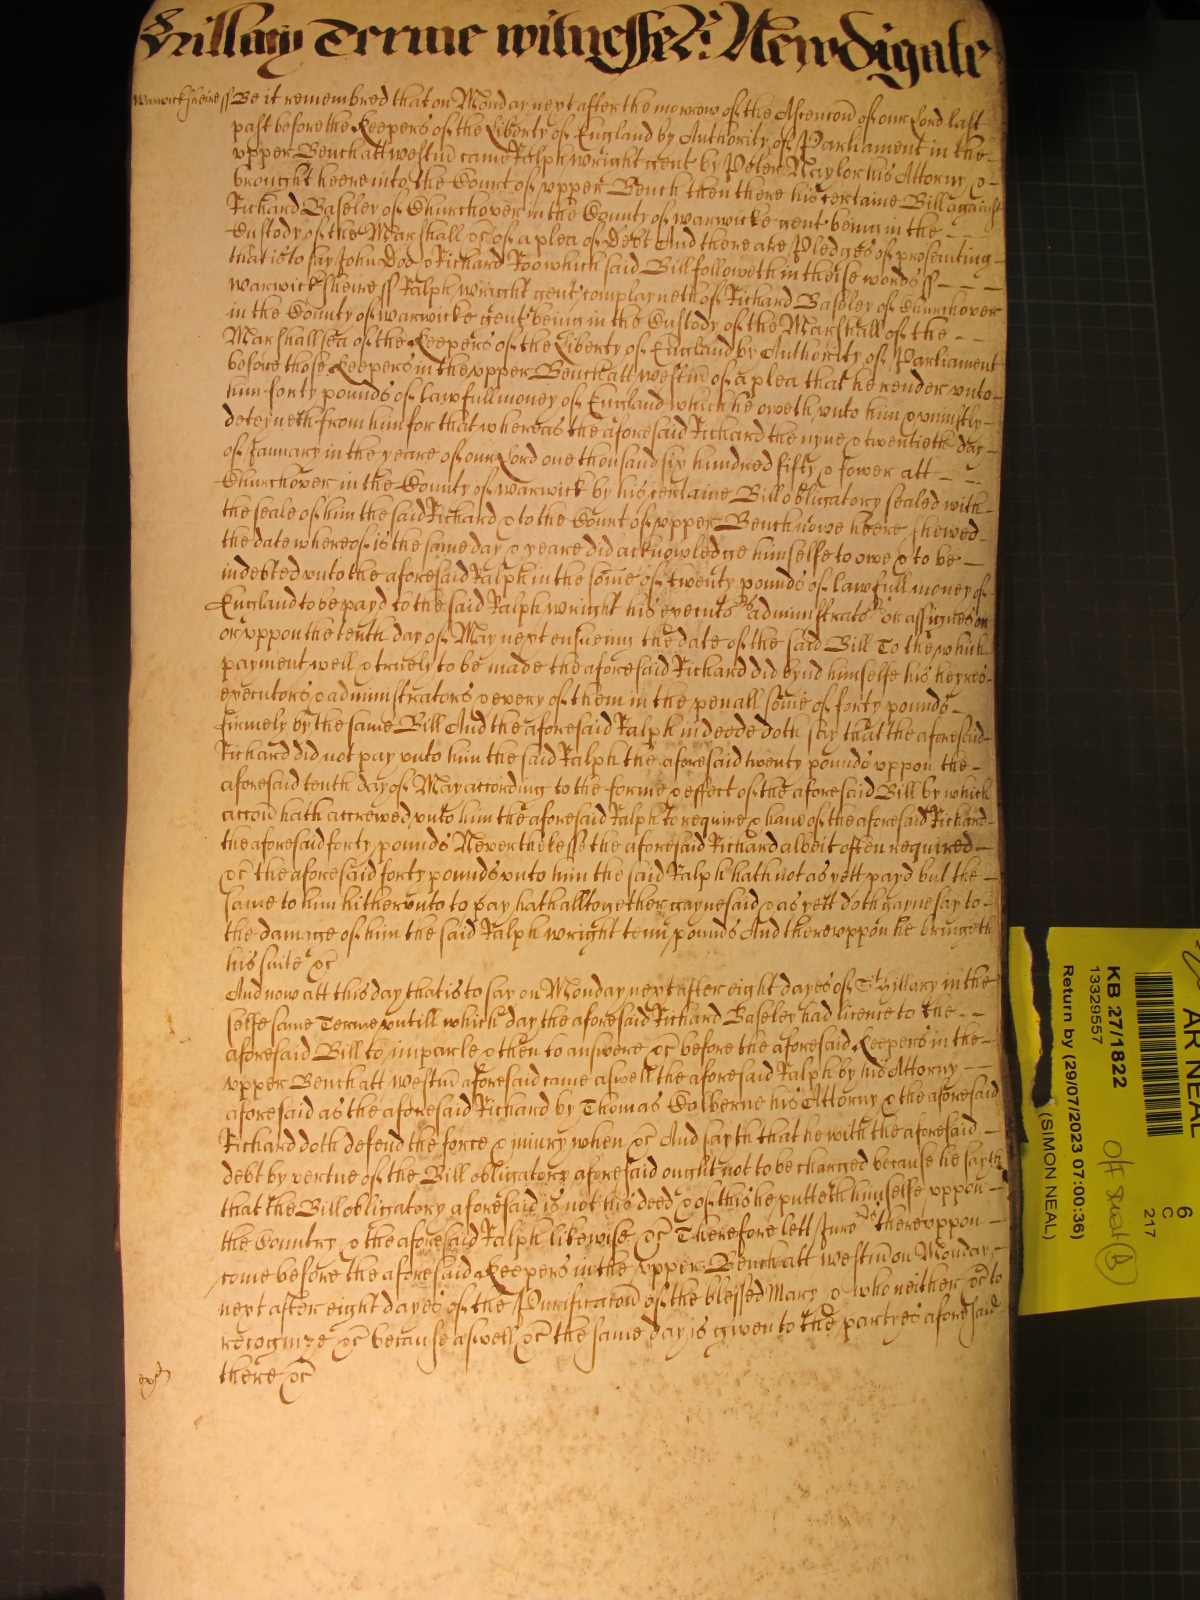 Hillary Terme witnesseth: Newdigate
Warwicksheire ss Be it remembred that on Monday next after the morrow of the Ascencon of our Lord last
past before the Keepers of the Liberty of England by Authority of Parliament in the
upper Bench att westm came Ralph wright gent by Peter Naylor his Attorny &
brought heere into the Court of upper Bench then there his certaine Bill against
Richard Baseley of Churchover in the County of warwicke gent being in the
Custody of the Marshall &c of a plea of Debt And there are Pledges of prosecuting
that is to say John Doo & Richard Roo which said Bill followeth in theise words ss
warwicksheire ss Ralph wright gent complayneth of Richard Baseley of Churchover
in the County of warwicke gent being in the Custody of the Marshall of the
Marshallsea of the Keepers of the Liberty of England by Authority of Parliament
before those Keepers in the upper Bench att westm of a plea that he render unto
him forty pounds of lawfull money of England which he oweth unto him & uniustly
deteyneth from him for that whereas the aforesaid Richard the nyne & twentieth day
of January in the yeare of our Lord one thousand six hundred fifty & fower att
Churchover in the County of warwick by his certaine Bill obligatory sealed with
the seale of him the said Richard & to the Court of upper Bench nowe heere shewed
the date whereof is the same day & yeare did acknowledge himselfe to owe & to be
indebted unto the aforesaid Ralph in the some of twenty pounds of lawfull money of
England to be payd to the said Ralph wright his executors administrators or assignes on
or uppon the tenth day of May next ensueing the date of the said Bill To the which
payment well & truely to be made the aforesaid Richard did bynd himselfe his heyres
executors & administrators & every of them in the penall some of forty pounds
firmely by the same Bill And the aforesaid Ralph indeede doth say that the aforesaid
Richard did not pay unto him the said Ralph the aforesaid twenty pounds uppon the
aforesaid tenth day of May according to the forme & effect of the aforesaid Bill by which
accon hath accrewed unto him the aforesaid Ralph To require & have of the aforesaid Richard
the aforesaid forty pounds Neverthelesse the aforesaid Richard albeit often required
&c the aforesaid forty pounds unto him the said Ralph hath not as yett payd but the
same to him hitherunto to pay hath alltogether gaynesaid & as yett doth gaynesay to
the damage of him the said Ralph wright tenn pounds And thereuppon he bringeth
his suite &c
And now att this day that is to say on Monday next after eight dayes of St Hillary in the
selfe same Terme untill which day the aforesaid Richard Baseley had licence to the
aforesaid Bill to imparle & then to answere &c before the aforesaid Keepers in the
upper Bench att westm aforesaid came aswell the aforesaid Ralph by his Attorny
aforesaid as the aforesaid Richard by Thomas Calberne his Attorny & the aforesaid
Richard doth defend the force & iniury when &c And sayth that he with the aforesaid
debt by vertue of the Bill obligatory aforesaid ought not to be charged because he sayth
that the Bill obligatory aforesaid is not his deed & of this he putteth himselfe uppon
the Country & the aforesaid Ralph likewise &c Therefore lett Jurors thereuppon
come before the aforesaid Keepers in the upper Bench att westm on Monday
next after eight dayes of the Purificacon of the blessed Mary & who neither &c to
recognize &c because aswell &c the same day is given to the partyes aforesaid
there &c
AR NEAL
KB 27/1822
13329557
Return by (29/07/2023 07:00:36)
(SIMON NEAL)
6
C
217